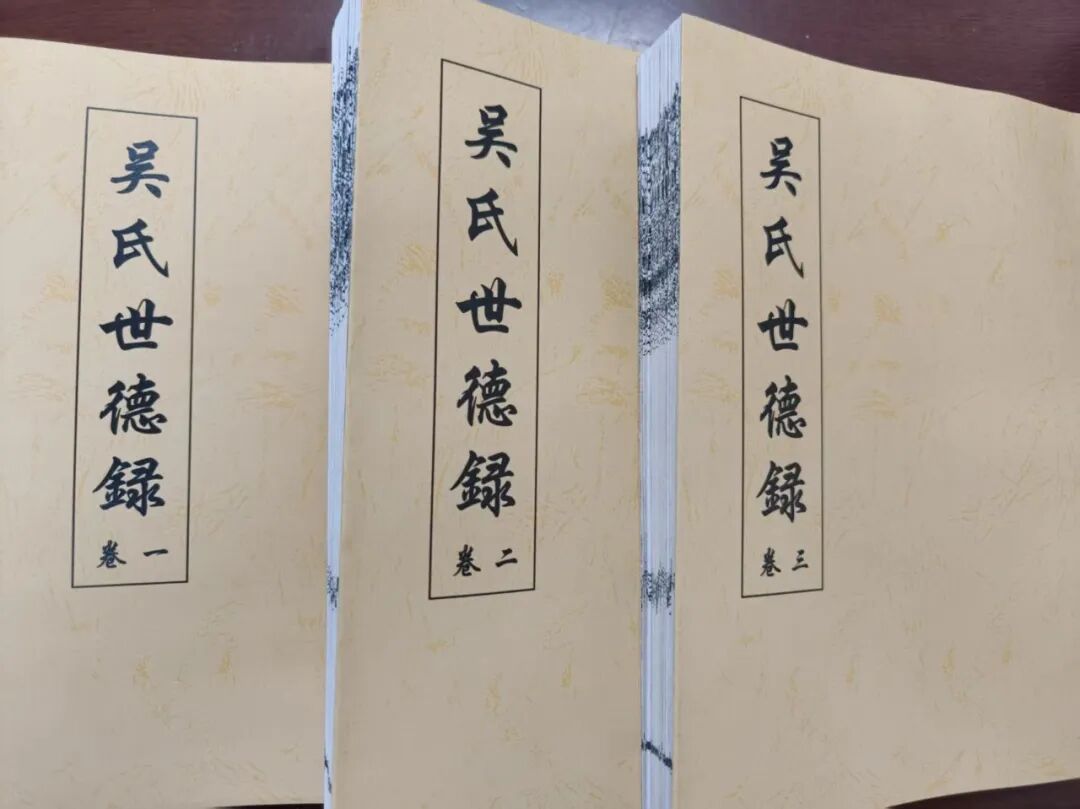 吴氏世德録
卷一
吴氏世德録
卷二
吴氏世德録
卷三